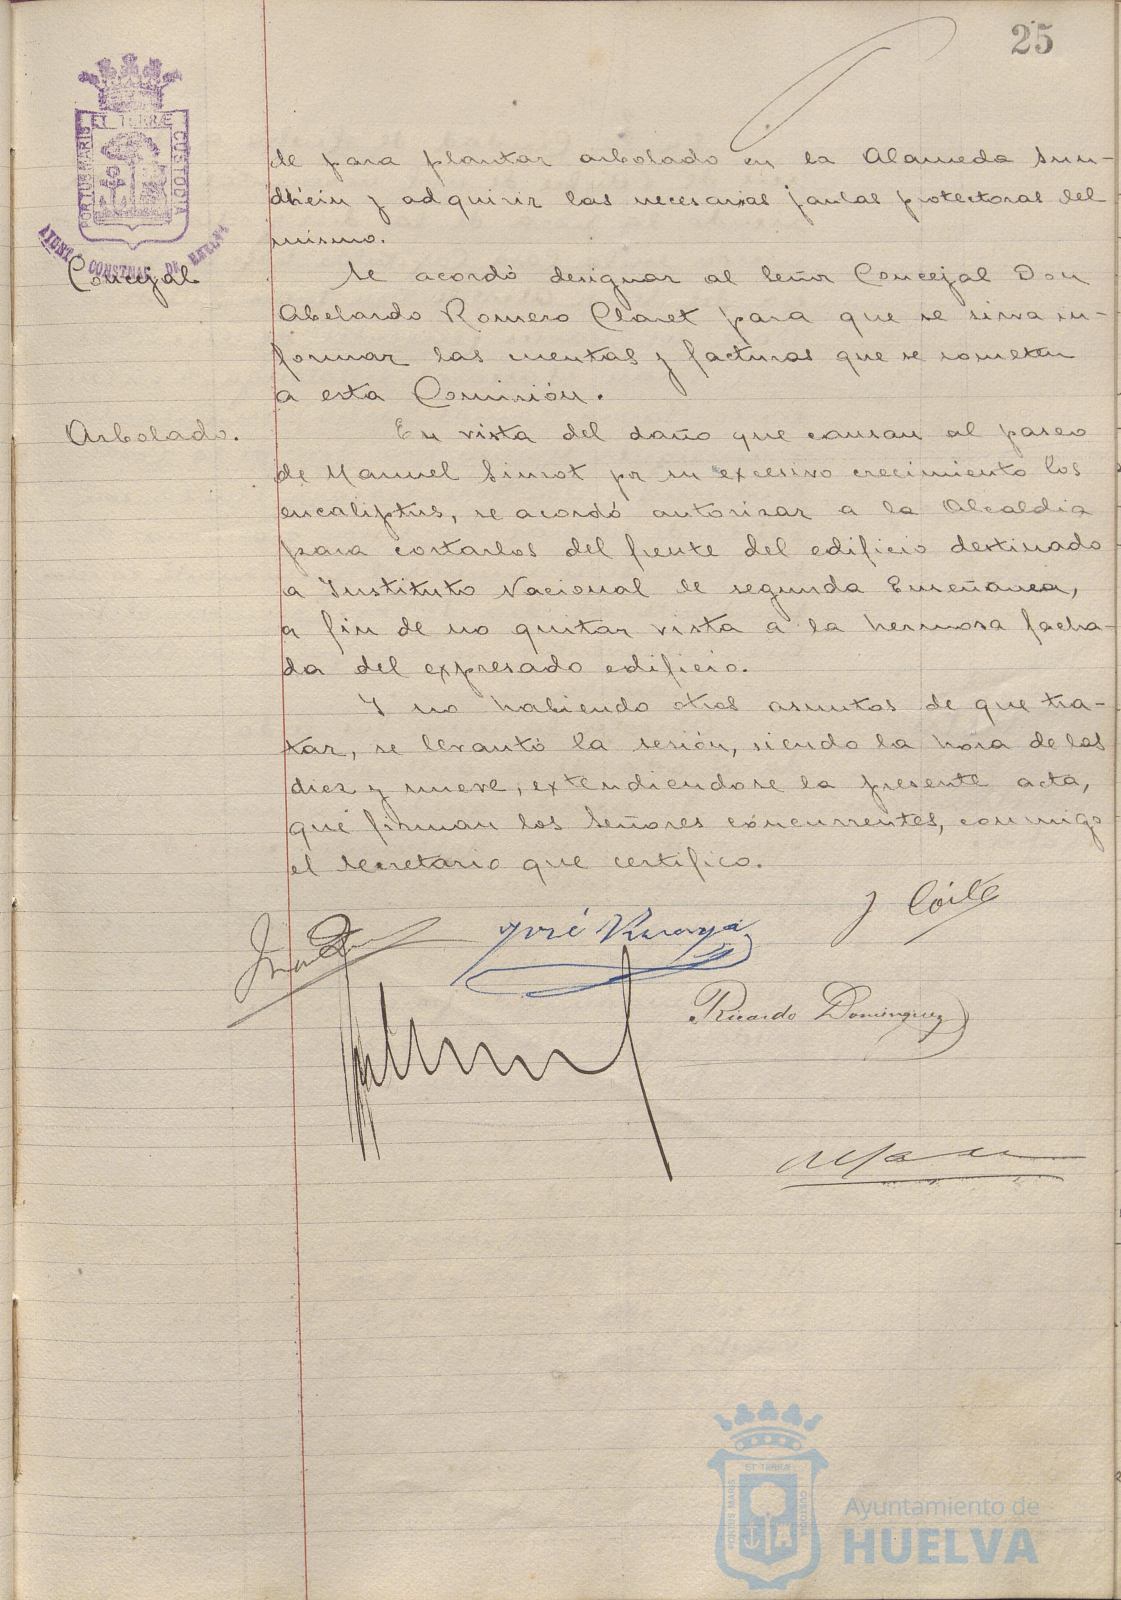 25
PORTUS MARIS
ET TERRÆ
CUSTODIA
AYUNTº CONSTNAL DE HUELVA
de para plantar arbolado en la Alameda Sun-
dhein y adquirir las necesarias jaulas protectoras del
mismo.
Concejal
Se acordó designar al Señor Concejal Don
Abelardo Romero Claret para que se sirva in-
formar las cuentas y facturas que se someten
a esta Comisión.
Arbolado.
En vista del daño que causan al paseo
de Manuel Siurot por su excesivo crecimiento los
eucaliptus, se acordó autorizar a la Alcaldia
para cortarlos del frente del edificio destinado
a Instituto Nacional de segunda Enseñanza,
a fin de no quitar vista a la hermosa facha-
da del expresado edificio.
Y no habiendo otros asuntos de que tra-
tar, se levantó la sesión, siendo la hora de las
diez y nueve, extendiendose la presente acta,
que firman los Señores concurrentes, conmigo
el Secretario que certifico.
José
J Córte
Ricardo Dominguez
PORTUS MARIS
ET TERRÆ
CUSTODIA
Ayuntamiento de
HUELVA